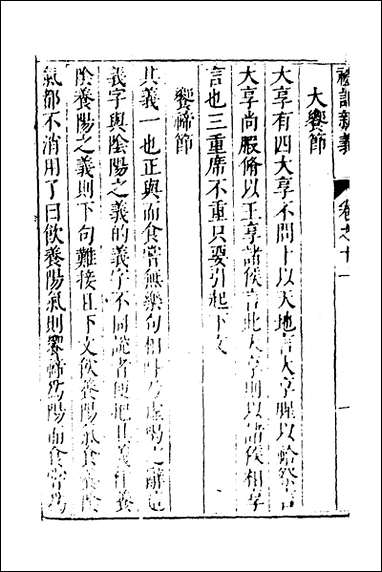 禮記新義 卷之十一 一
大饗節
大享有四大享不問卜以天地言大享腥以祫祭言
大享尚腶脩以王享諸侯言此大享則以諸侯相享
言也三重席不重只要引起下文
饗禘節
其義一也正與而食嘗無樂句相
義字與陰陽之義的義字不同說者便把其義作養
陰養陽之義則下句難接且下文飲養陽氣食養陰
氣都不消用了曰飲養陽氣則饗禘爲陽而食嘗爲